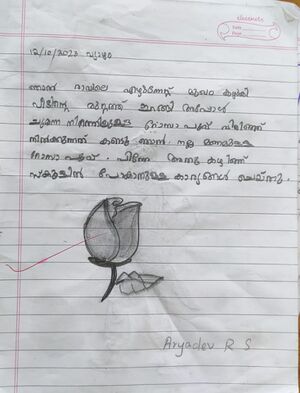 classmate
Date
Page
12/10/2023 വ്യാഴം
ഞാൻ രാവിലെ എഴുന്നേറ്റ് മുഖം കഴുകി
വീടിന്റെ മുറ്റത്ത് ഇറങ്ങി അപ്പോൾ
ചുമന്ന നിറത്തിലുള്ള റോസാ പൂവ് വിരിഞ്ഞ്
നിൽക്കുന്നത് കണ്ടു ഞാൻ. നല്ല മണമുള്ള
റോസാ പൂവ്. പിന്നെ അതു കഴിഞ്ഞ്
സ്കൂളിൽ പോകാനുള്ള കാര്യങ്ങൾ ചെയ്തു.
Aryadev R S